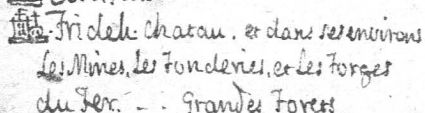 Fridek chatau. et dans ses environs
Les Mines, Les Fonderies, et Les Forges
du Fer. - - Grandes Forets